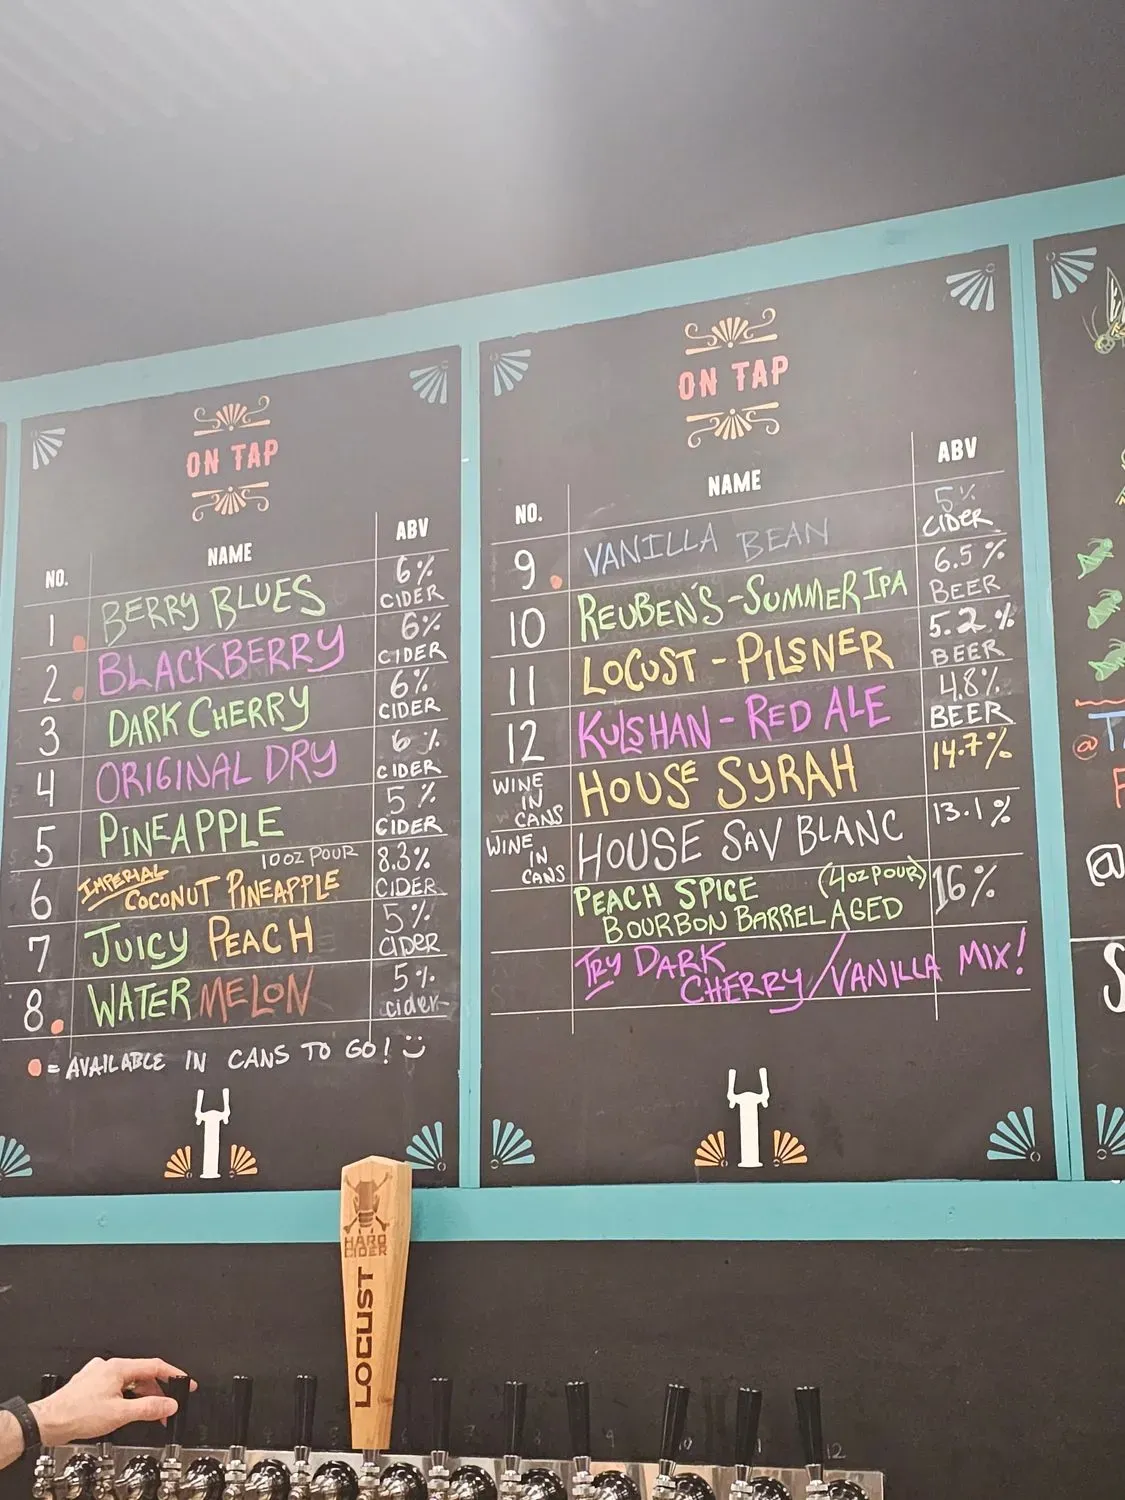 ON TAP
NO. NAME ABV
1 BERRY BLUES 6% CIDER
2 BLACKBERRY 6% CIDER
3 DARK CHERRY 6% CIDER
4 ORIGINAL DRY 6% CIDER
5 PINEAPPLE 5% CIDER
6 IMPERIAL COCONUT PINEAPPLE 10OZ POUR 8.3% CIDER
7 JUICY PEACH 5% CIDER
8 WATERMELON 5% cider
= AVAILABLE IN CANS TO GO!
ON TAP
NO. NAME ABV
9 VANILLA BEAN 5% CIDER
10 REUBEN'S - SUMMER IPA 6.5% BEER
11 LOCUST - PILSNER 5.2% BEER
12 KULSHAN - RED ALE 4.8% BEER
WINE IN CANS HOUSE SYRAH 14.7%
WINE IN CANS HOUSE SAV BLANC 13.1%
PEACH SPICE (4OZ POUR) 16%
BOURBON BARREL AGED
TRY DARK CHERRY/VANILLA MIX!
HARD CIDER
LOCUST
12